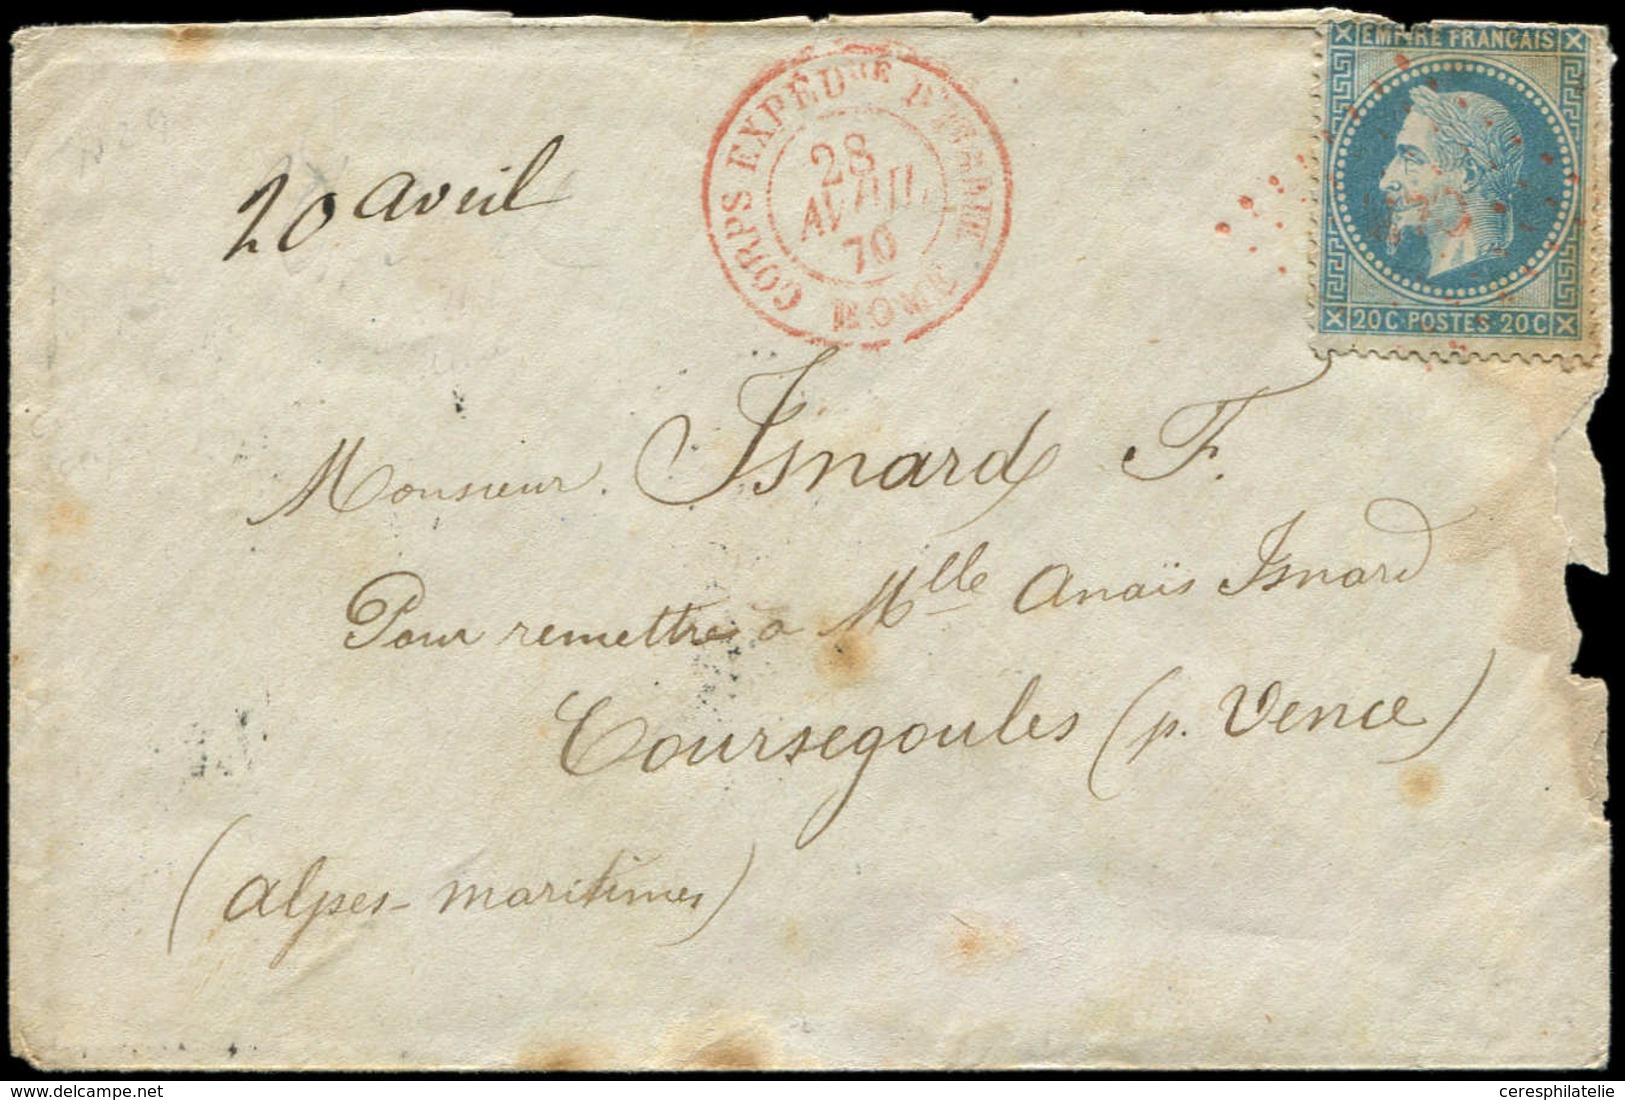 EMPIRE FRANCAIS
20C·POSTES·20C
CORPS EXPÉDRE D'ITALIE
28
AVRIL
70
ROME
20 avril
Monsieur. Isnard F.
Pour remettre à Mlle Anaïs Isnard
Coursegoules (p. Vence)
(Alpes-maritimes)
ceresphilatelie